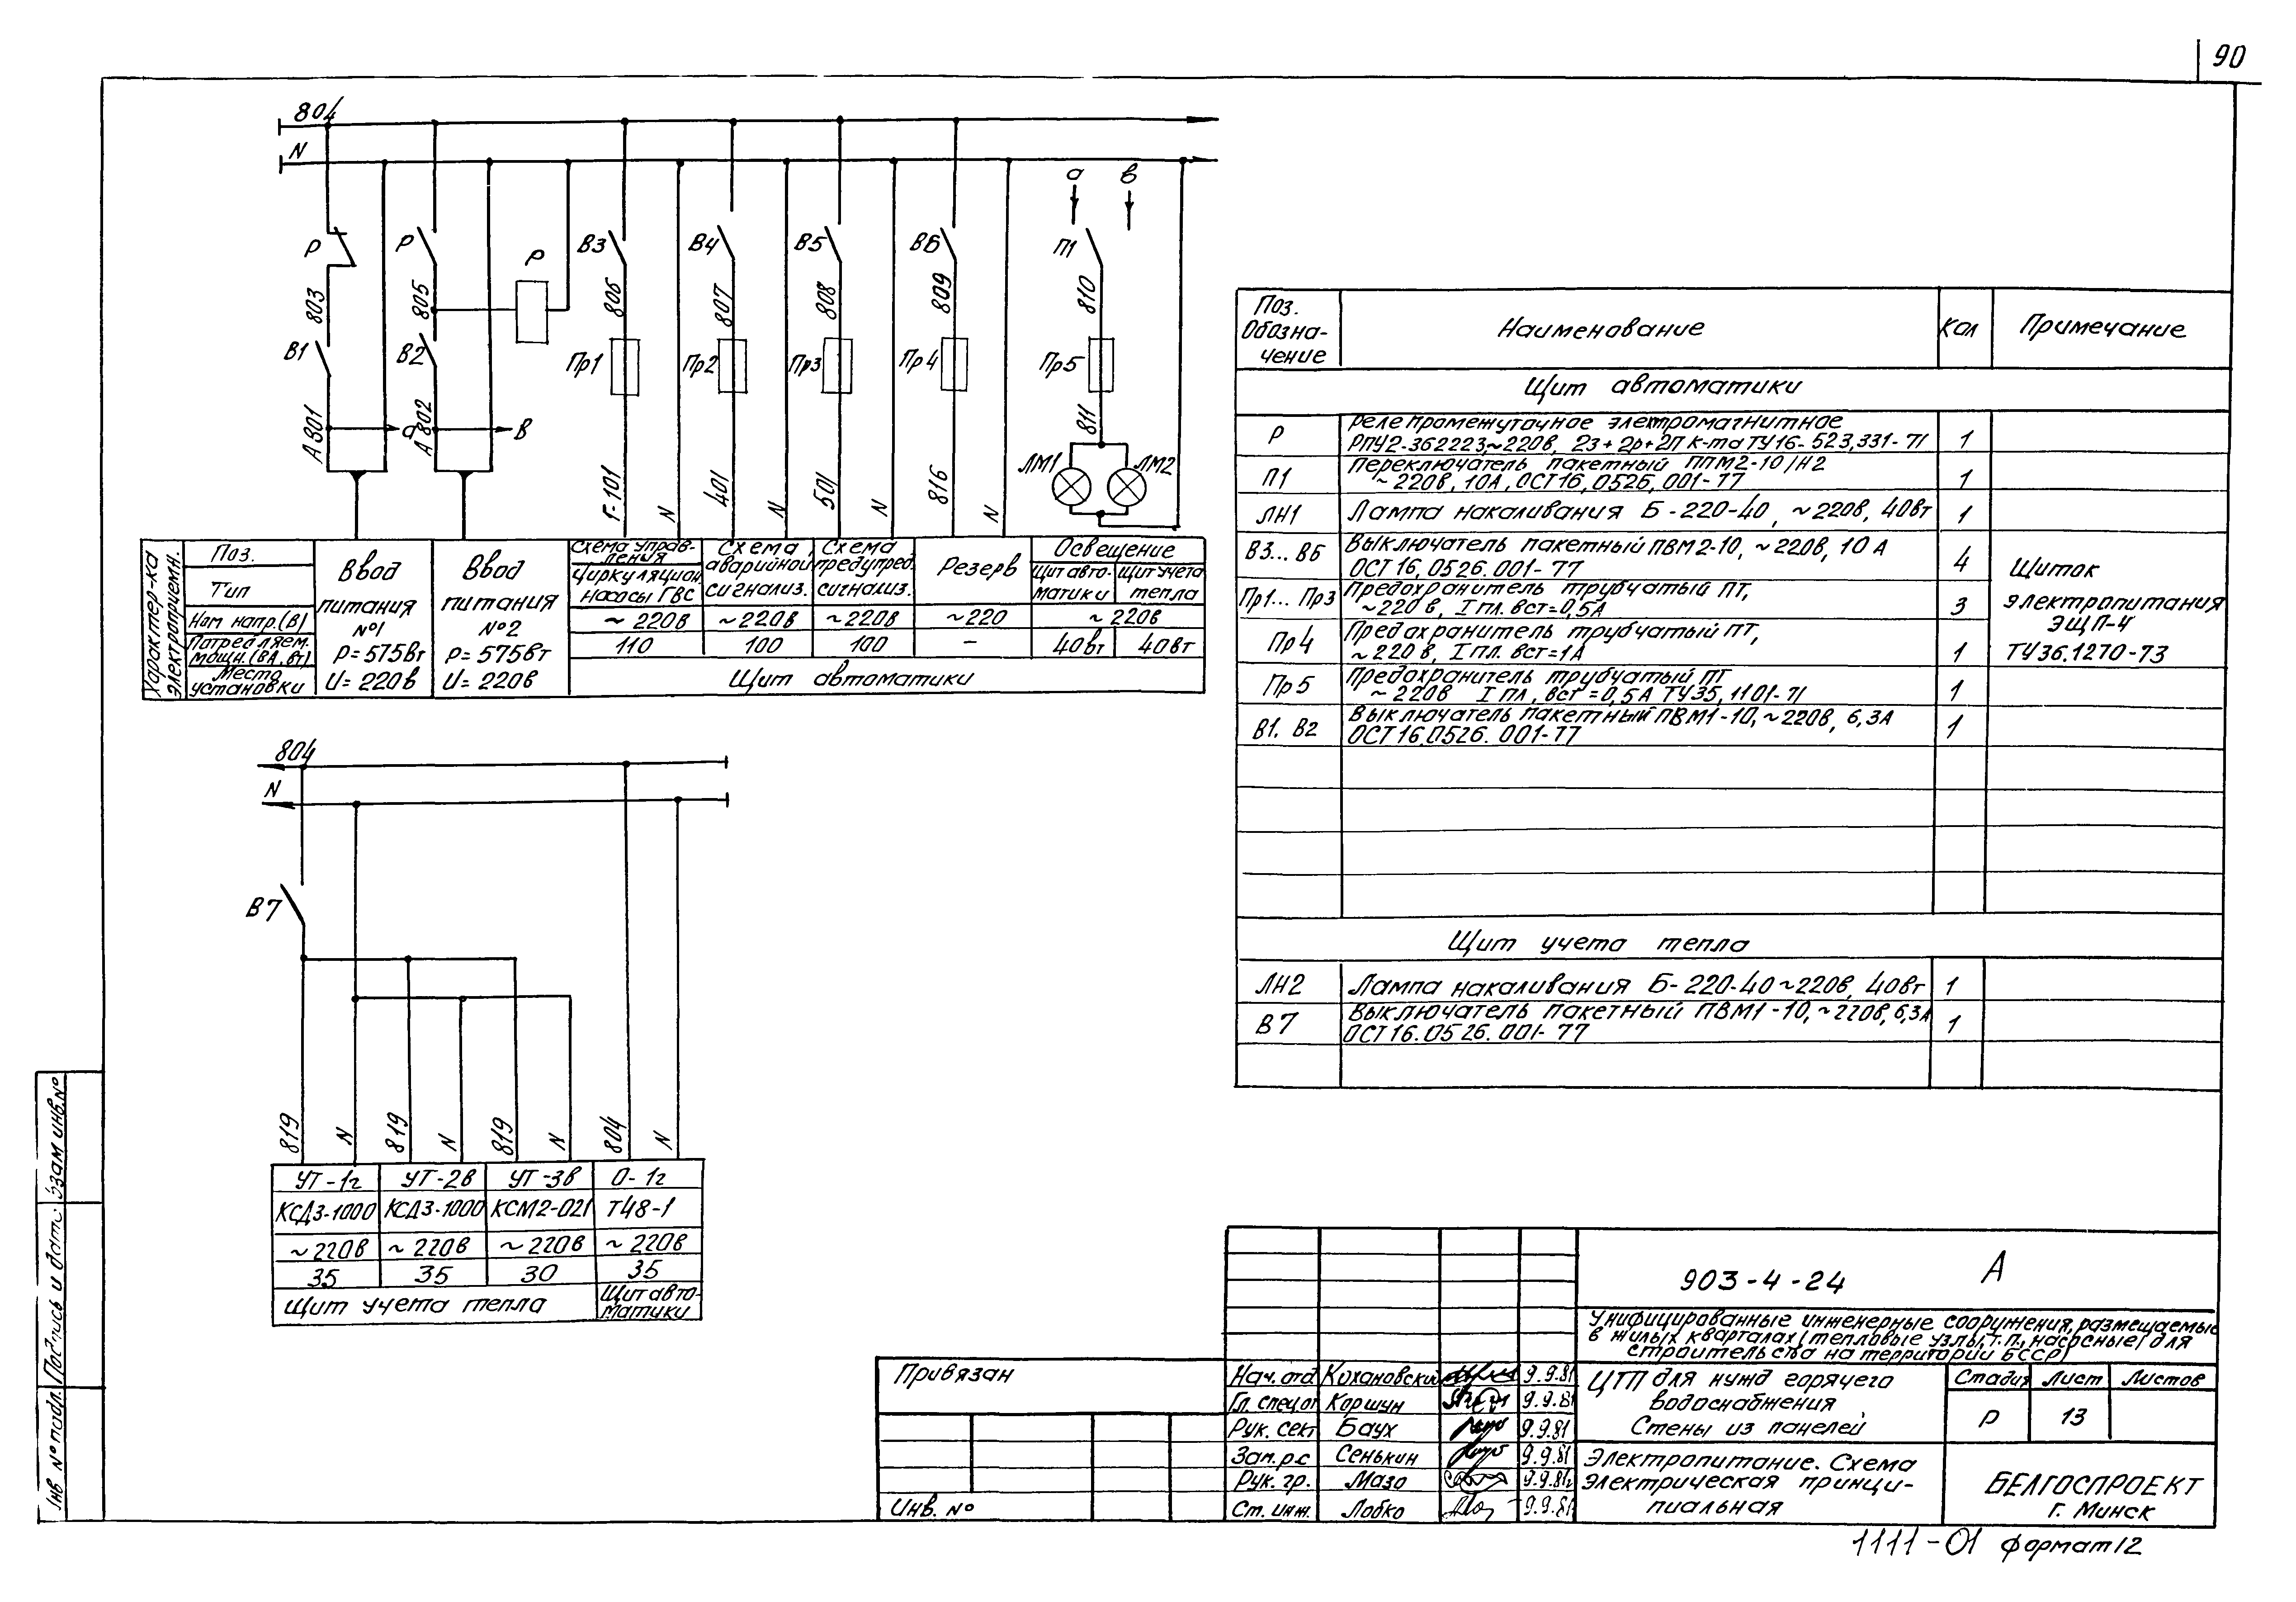 90
804
N
а
в
Р
Р
Р
В3
В4
В5
В6
П1
803
805
806
807
808
809
810
В1
В2
Пр1
Пр2
Пр3
Пр4
Пр5
А801
а
А802
в
811
ЛМ1
ЛМ2
Г-101
N
401
N
501
N
816
N
Характер-ка электроприемн.
Поз.
Тип
Ном напр.(В)
Потребляем. мощн.(ВА, вт)
Место установки
Ввод
питания
№1
Р=575вт
U=220в
Ввод
питания
№2
Р=575вт
U=220в
Схема управ-
ления
циркуляцион.
насосы ГВС
~220в
110
Схема
аварийной
сигнализ.
~220в
100
Схема
предупред.
сигнализ.
~220в
100
Резерв
~220
–
Освещение
Щит авто-
матики
Щит учета
тепла
~220в
40вт
40вт
Щит автоматики
804
N
В7
819
N
819
N
819
N
804
N
УТ-1г УТ-2в УТ-3в О-1г
КСД3-1000 КСД3-1000 КСМ2-021 Т48-1
~220в ~220в ~220в ~220в
35 35 30 35
Щит учета тепла
Щит авто-
матики
Поз.
Обозна-
чение
Наименование
Кол
Примечание
Щит автоматики
Р
Реле промежуточное элетромагнитное
РПУ2-362223,~220в, 2з+2р+2П к-та ТУ16-523,331-71
1
П1
Переключатель пакетный ППМ2-10/Н2
~220в, 10А, ОСТ16, 0526, 001-77
1
ЛН1
Лампа накаливания Б-220-40, ~220в, 40вт
1
В3...В6
Выключатель пакетный ПВМ2-10, ~220в, 10А
ОСТ 16, 0526. 001-77
4
Пр1...Пр3
Предохранитель трубчатый ПТ,
~220в, Iпл. вст=0,5А
3
Пр4
Предохранитель трубчатый ПТ,
~220в, Iпл. вст=1А
1
Щиток
электропитания
ЭЩП-4
ТУ36.1270-73
Пр5
Предохранитель трубчатый ПТ
~220в Iпл, вст=0,5А ТУ35, 1101-71
1
В1. В2
Выключатель пакетный ПВМ1-10, ~220в, 6,3А
ОСТ16.0526. 001-77
1
Щит учета тепла
ЛН2
Лампа накаливания Б-220-40~220в, 40вт
1
В7
Выключатель пакетный ПВМ1-10, ~220в, 6,3А
ОСТ16.0526.001-77
1
903-4-24
А
Унифицированные инженерные сооружения, размещаемые
в жилых кварталах (тепловые узлы, т.п., насосные) для
строительства на территории БССР)
Привязан
Инв. №
Нач. отд Кохановский 9.9.81
Гл. спец.от Коршун 9.9.81
Рук. сект Баух 9.9.81
Зам. р.с Сенькин 9.9.81
Рук. гр. Мазо 9.9.81г
Ст. инж. Лобко 9.9.81
ЦТП для нужд горячего
водоснабжения
Стены из панелей
Стадия Лист Листов
Р 13
Электропитание. Схема
электрическая принци-
пиальная
БЕЛГОСПРОЕКТ
г. Минск
1111-01 формат 12
Инв № подл. Подпись и дата Взам инв.№